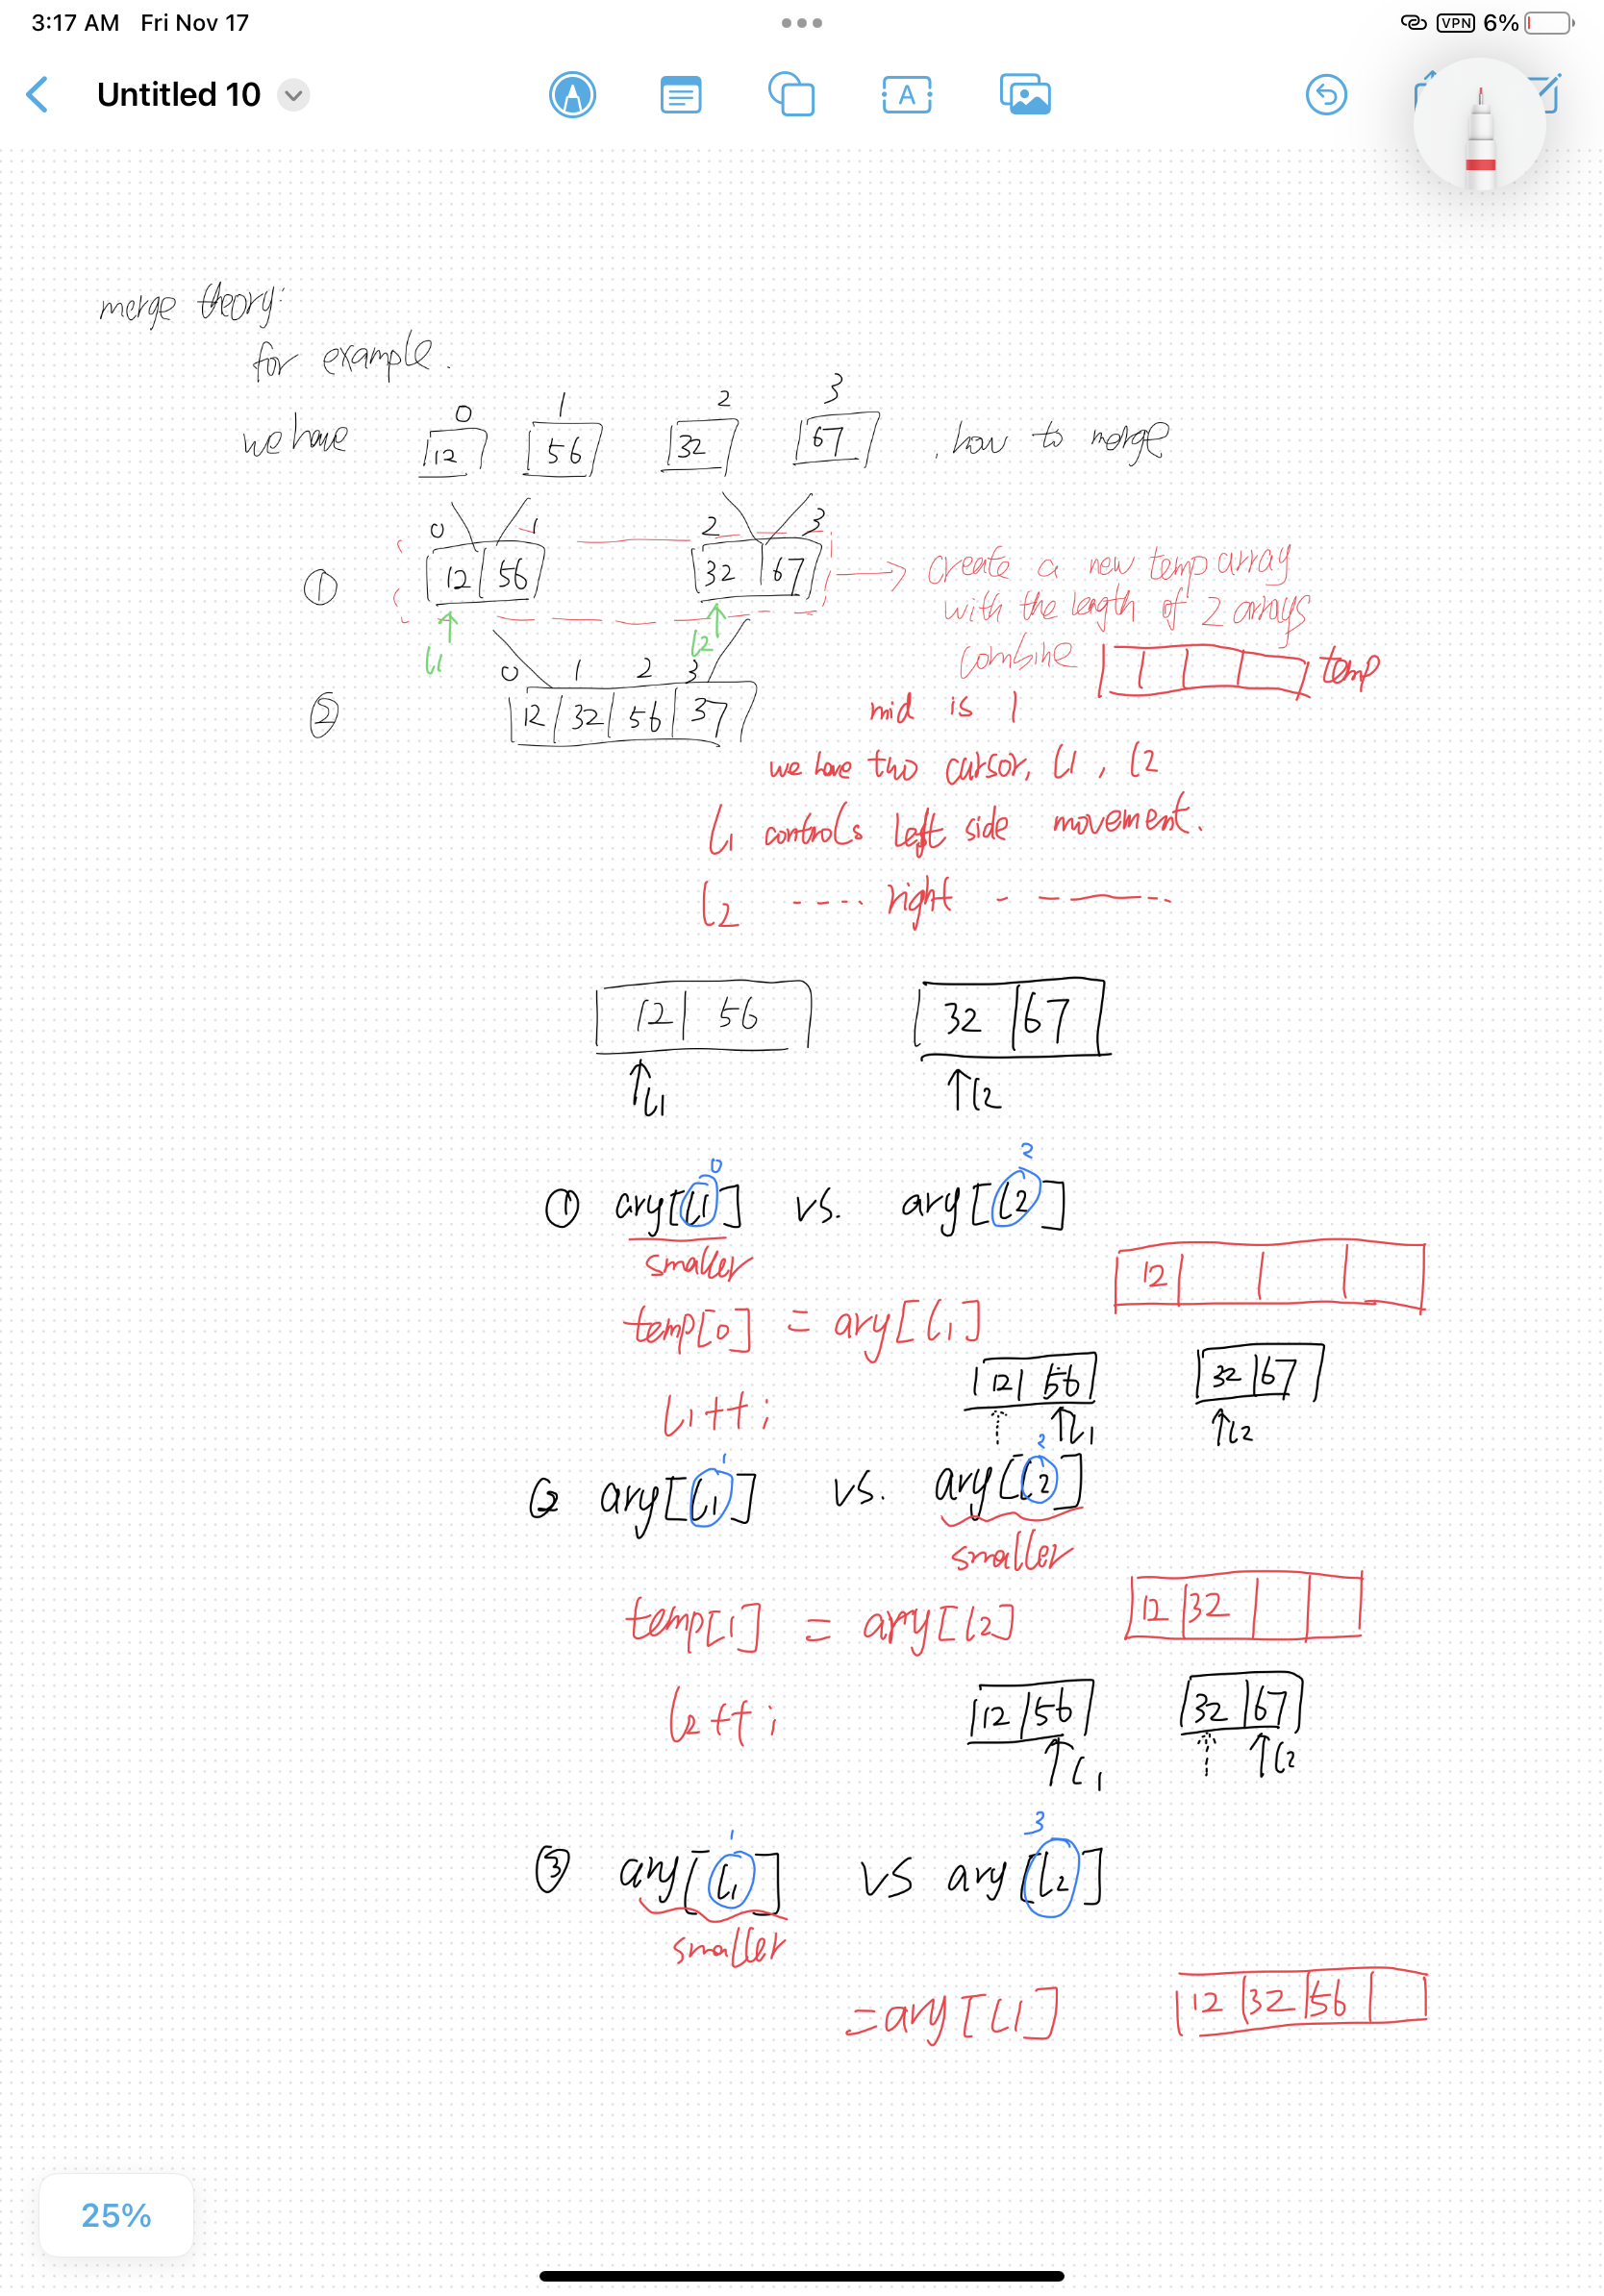 3:17 AM Fri Nov 17
VPN 6%
Untitled 10
A
merge theory:
for example.
0 1 2 3
we have 12 56 32 67 , how to merge
0 1 2 3
① 12 56 32 67 create a new temp array
with the length of 2 arrays
l1 l2 combine temp
0 1 2 3
② 12 32 56 37 mid is 1
we have two cursor, l1, l2
l1 controls left side movement.
l2 ---- right - - ---- -.
12 56 32 67
l1 l2
0 2
① ary[l1] vs. ary[l2]
smaller
12
temp[0] = ary[l1]
12 56 32 67
l1++;
l1 l2
1 2
② ary[l1] vs. ary[l2]
smaller
temp[1] = ary[l2] 12 32
l2++; 12 56 32 67
l1 l2
1 3
③ ary[l1] vs ary[l2]
smaller
=ary[l1] 12 32 56
25%